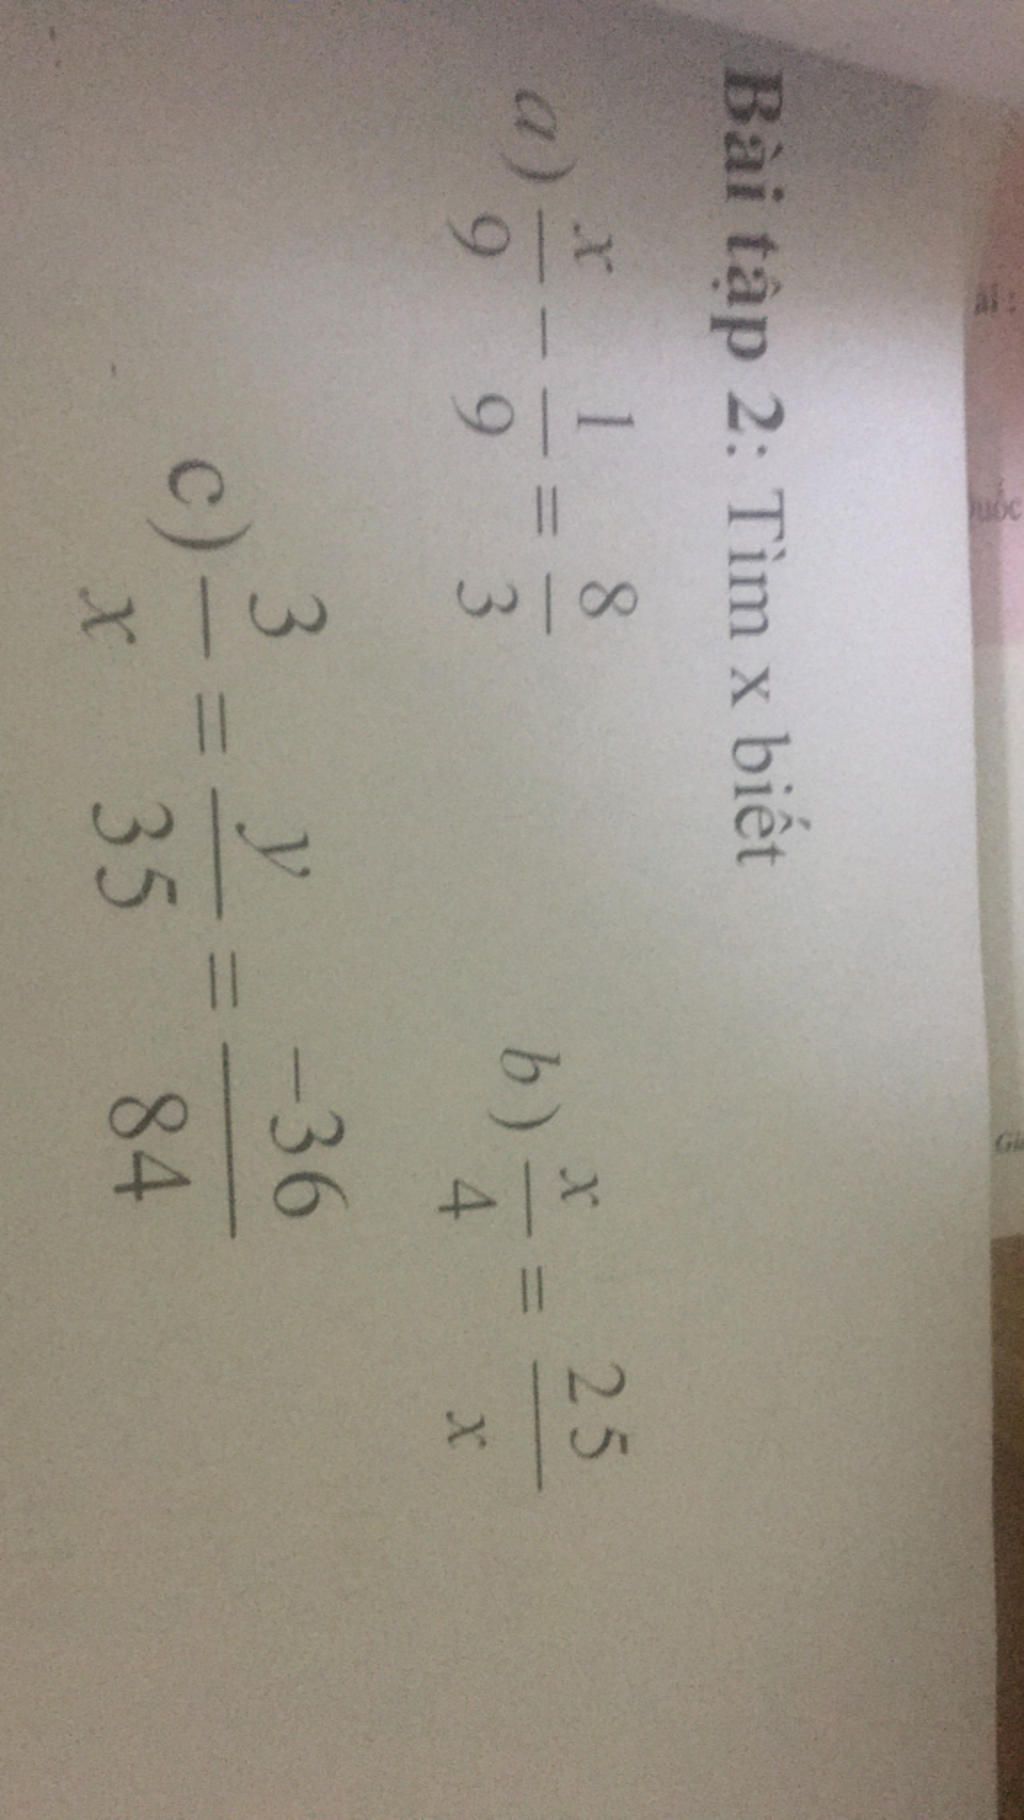 Bài tập 2: Tìm x biết
a) x/9 - 1/9 = 8/3
b) x/4 = 25/x
c) 3/x = y/35 = -36/84